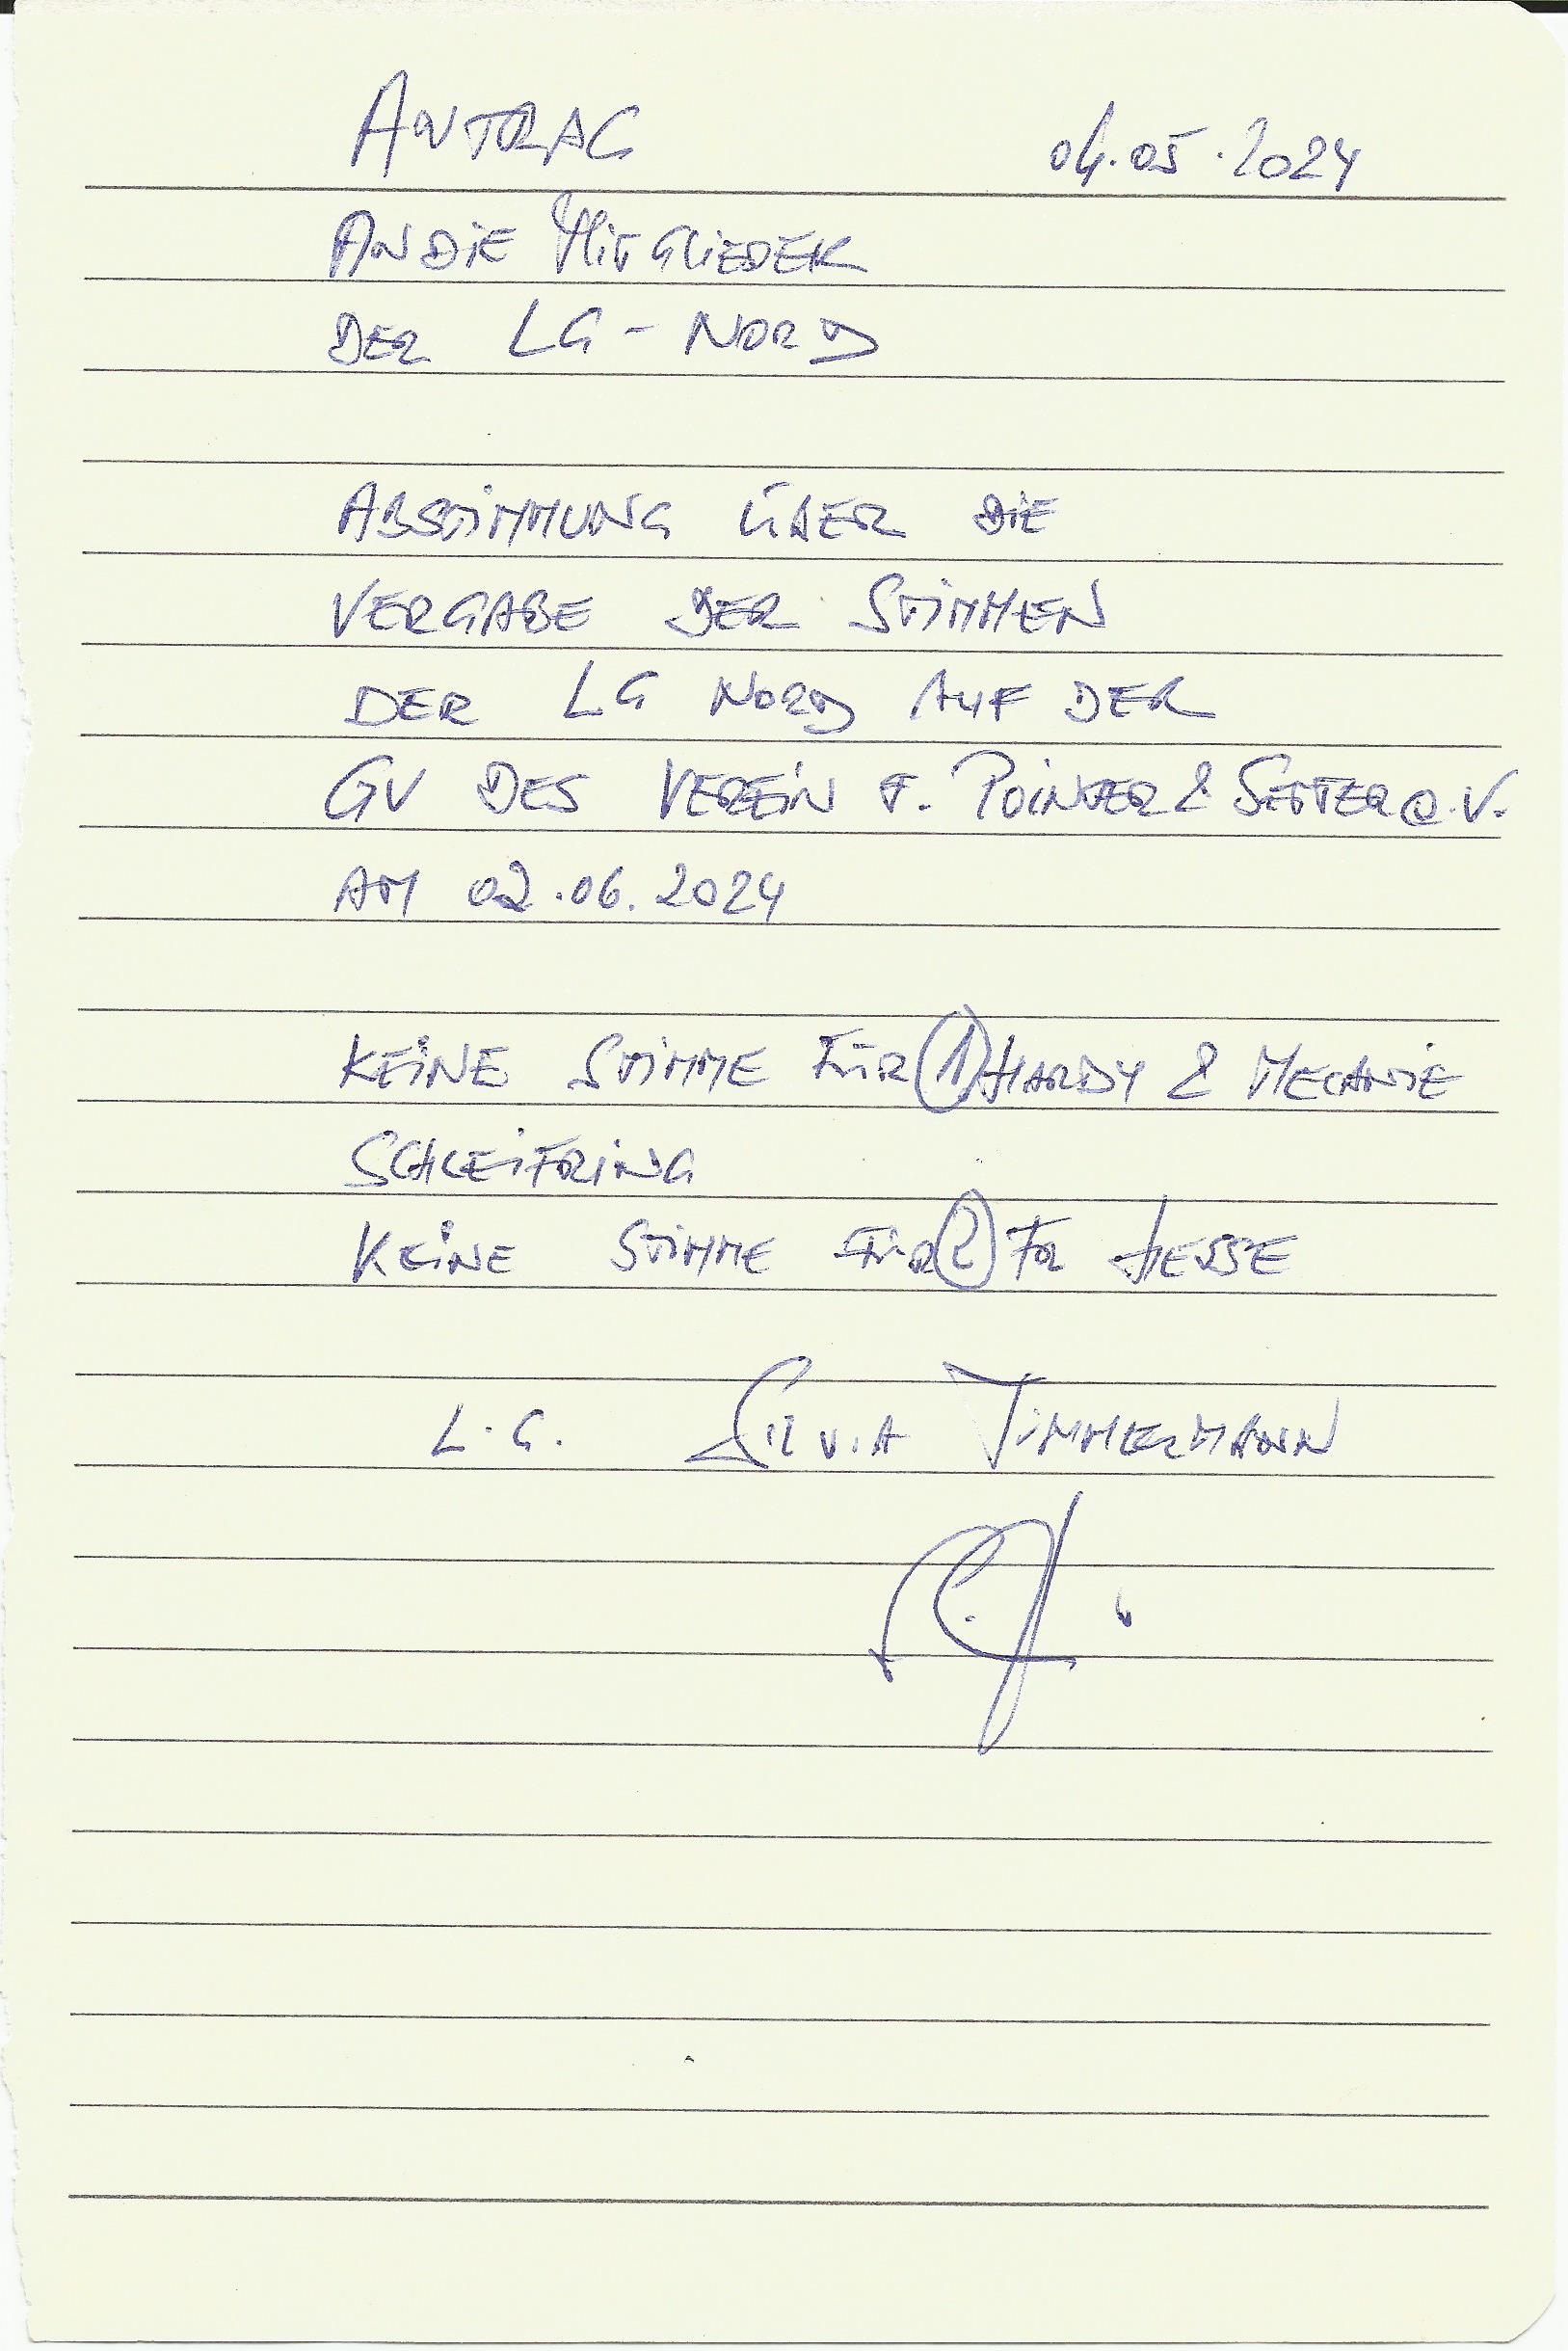 ANTRAG 04.05.2024
AN DIE MITGLIEDER
DER LG - NORD
ABSTIMMUNG ÜBER DIE
VERGABE DER STIMMEN
DER LG NORD AUF DER
GV DES VEREIN F. POINTER & SETTER e.V.
AM 02.06.2024
KEINE STIMME FÜR 1 HARDY & MELANIE
SCHLEIFRING
KEINE STIMME FÜR 2 FR HESSE
L.G. SILVIA TIMMERMANN